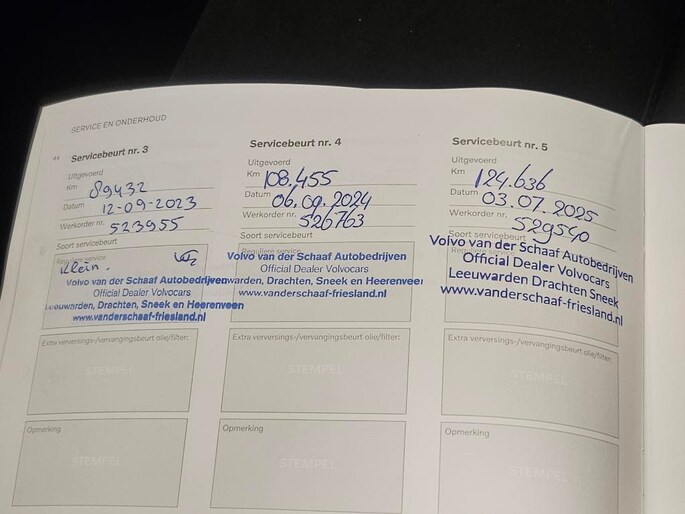 SERVICE EN ONDERHOUD
44
Servicebeurt nr. 3
Uitgevoerd
Km 89432
Datum 12-09-2023
Werkorder nr. 523955
Soort servicebeurt
Reguliere service
Klein.
Volvo van der Schaaf Autobedrijven
Official Dealer Volvocars
Leeuwarden, Drachten, Sneek en Heerenveen
www.vanderschaaf-friesland.nl
Extra verversings-/vervangingsbeurt olie/filter:
STEMPEL
Opmerking
STEMPEL
Servicebeurt nr. 4
Uitgevoerd
Km 108.455
Datum 06.09.2024
Werkorder nr. 526763
Soort servicebeurt
Reguliere service
Volvo van der Schaaf Autobedrijven
Official Dealer Volvocars
Drachten, Sneek en Heerenveen
www.vanderschaaf-friesland.nl
Extra verversings-/vervangingsbeurt olie/filter:
STEMPEL
Opmerking
STEMPEL
Servicebeurt nr. 5
Uitgevoerd
Km 124.636
Datum 03.07.2025
Werkorder nr. 529540
Soort servicebeurt
Volvo van der Schaaf Autobedrijven
Official Dealer Volvocars
Leeuwarden Drachten Sneek
www.vanderschaaf-friesland.nl
Extra verversings-/vervangingsbeurt olie/filter:
STEMPEL
Opmerking
STEMPEL